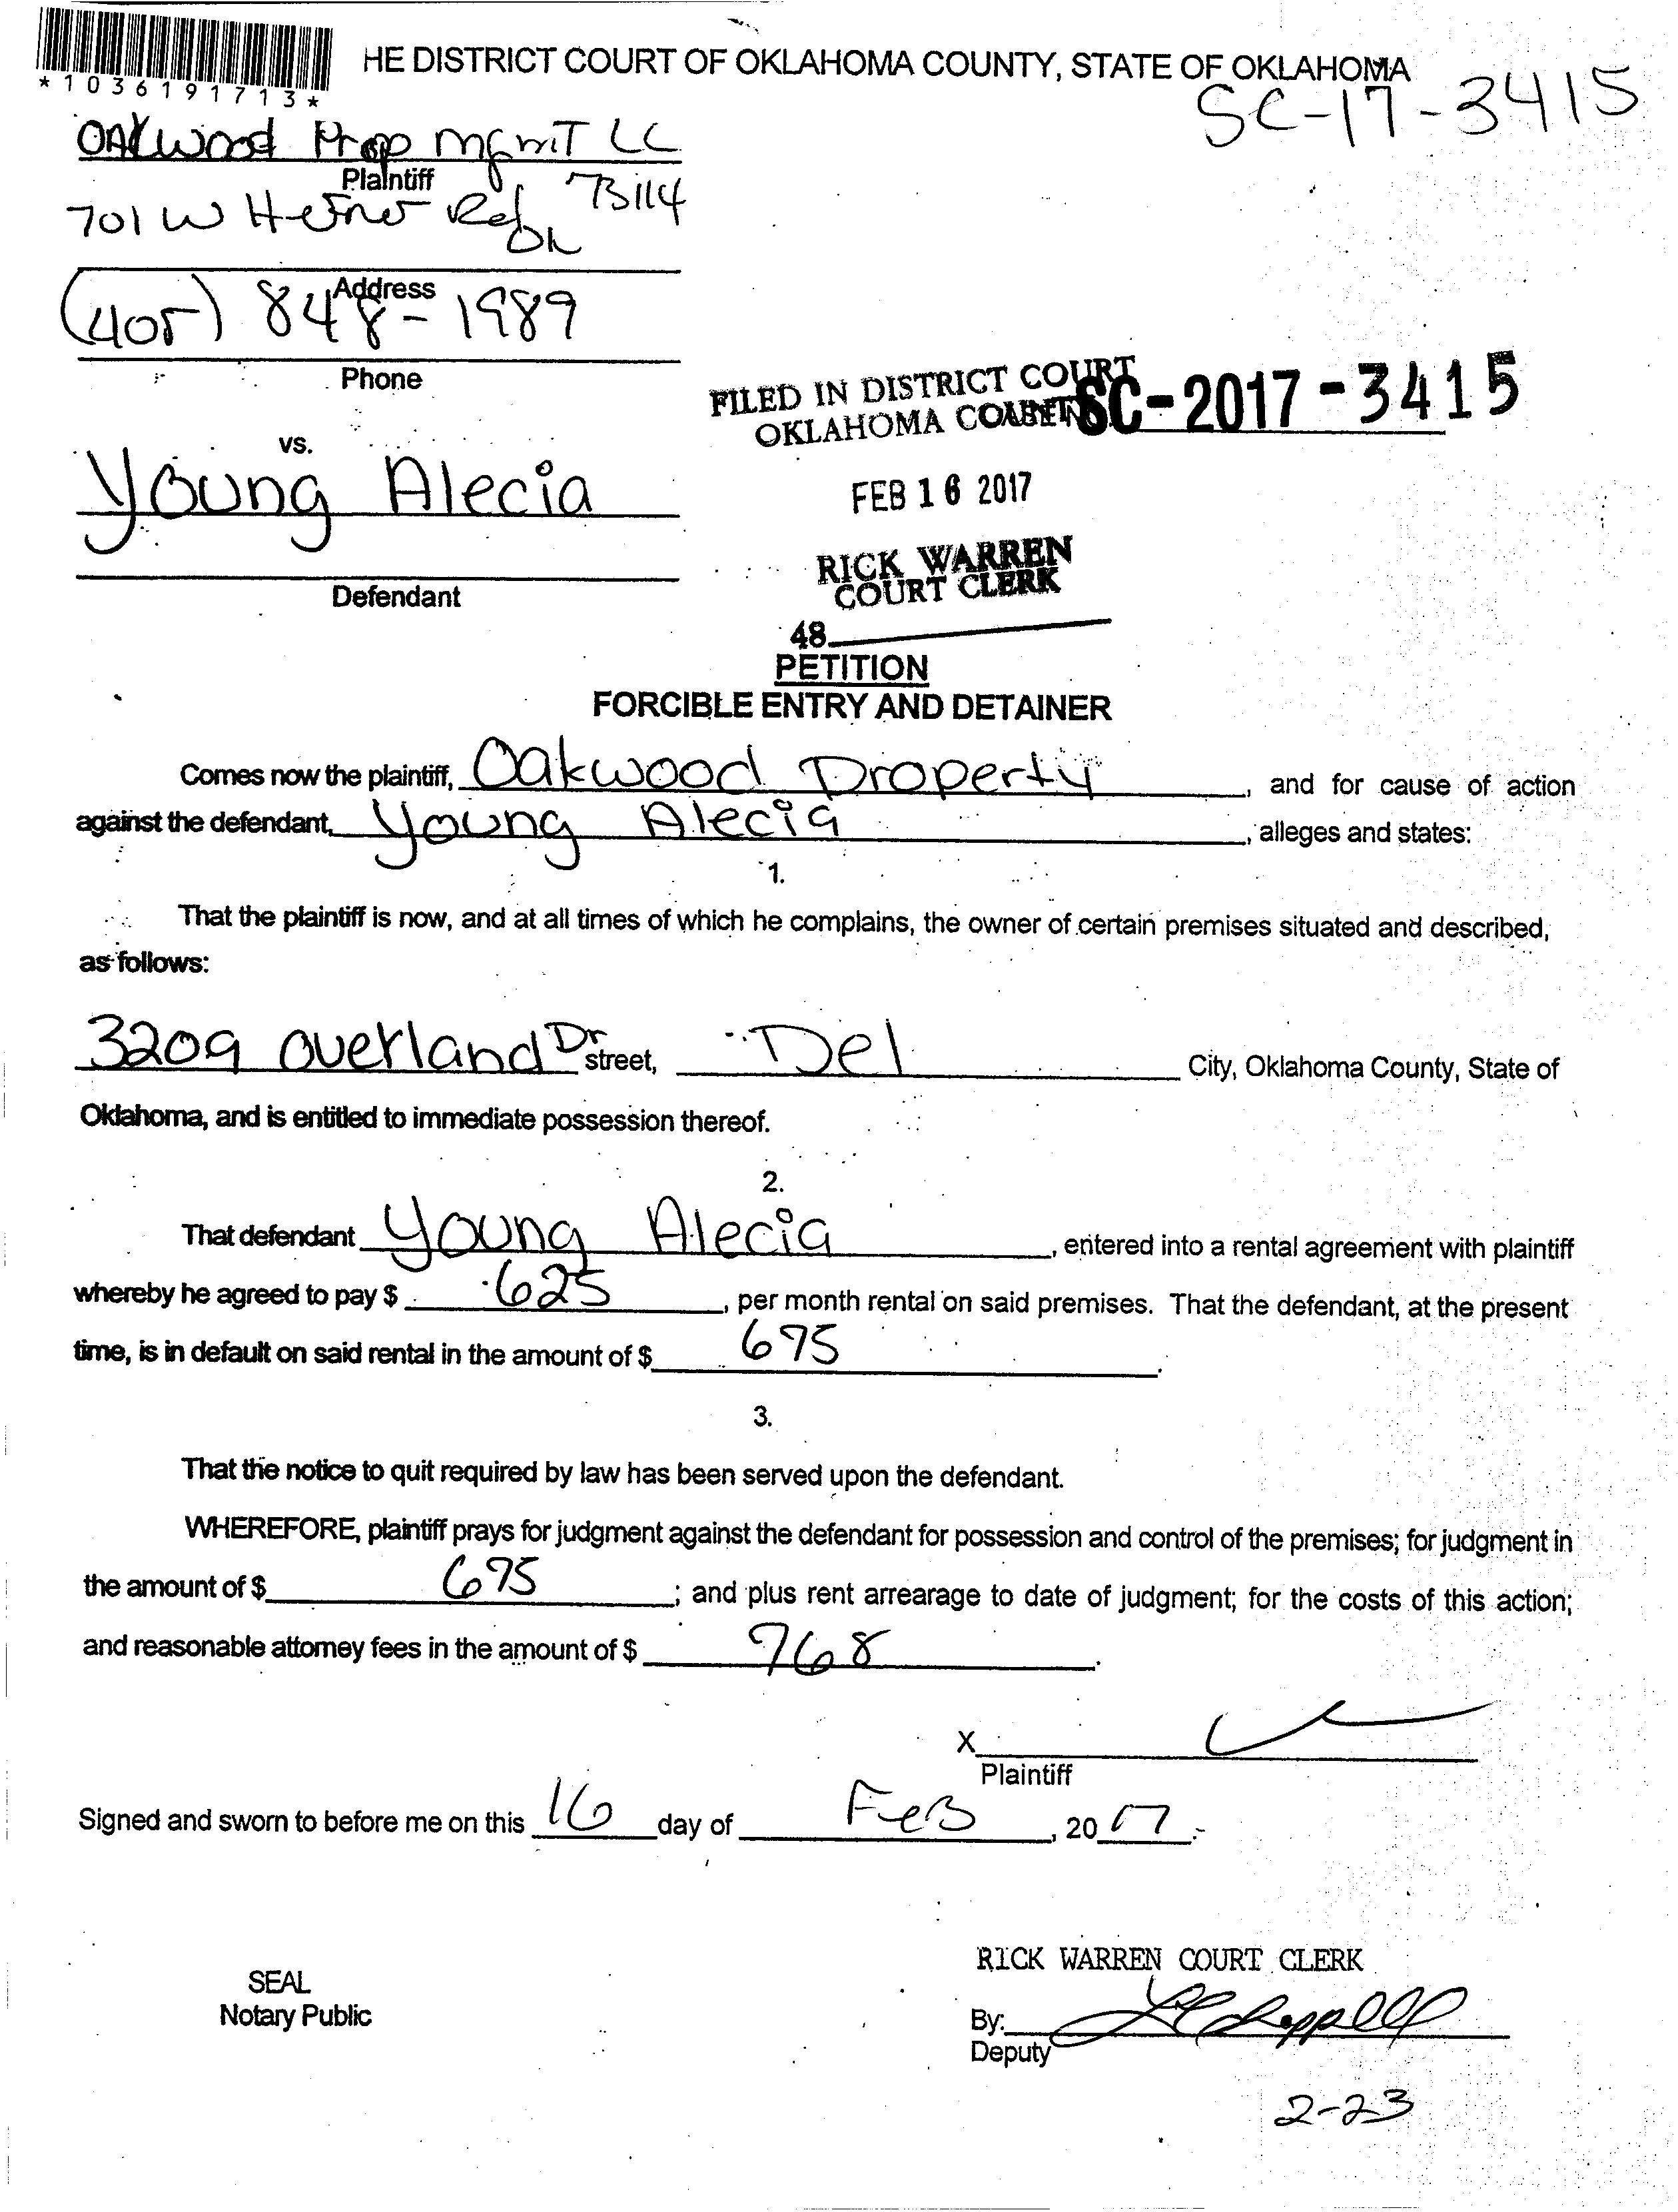 *1036191713*
HE DISTRICT COURT OF OKLAHOMA COUNTY, STATE OF OKLAHOMA
SC-17-3415
Oakwood Prop mgmT LC
Plaintiff
701 W Hefner Rd 73114
OK
Address
(405) 848-1989
Phone
FILED IN DISTRICT COURT
OKLAHOMA COUNTY
SC-2017-3415
vs.
Young Alecia
FEB 16 2017
RICK WARREN
COURT CLERK
Defendant
48
PETITION
FORCIBLE ENTRY AND DETAINER
Comes now the plaintiff, Oakwood Property, and for cause of action
against the defendant, Young Alecia, alleges and states:
1.
That the plaintiff is now, and at all times of which he complains, the owner of certain premises situated and described,
as follows:
3209 overland Dr street, Del City, Oklahoma County, State of
Oklahoma, and is entitled to immediate possession thereof.
2.
That defendant Young Alecia, entered into a rental agreement with plaintiff
whereby he agreed to pay $ 625, per month rental on said premises. That the defendant, at the present
time, is in default on said rental in the amount of $ 675.
3.
That the notice to quit required by law has been served upon the defendant.
WHEREFORE, plaintiff prays for judgment against the defendant for possession and control of the premises; for judgment in
the amount of $ 675; and plus rent arrearage to date of judgment; for the costs of this action;
and reasonable attorney fees in the amount of $ 768.
X
Plaintiff
Signed and sworn to before me on this 16 day of FeB, 2017.
RICK WARREN COURT CLERK
SEAL
Notary Public
By:
Deputy
2-23